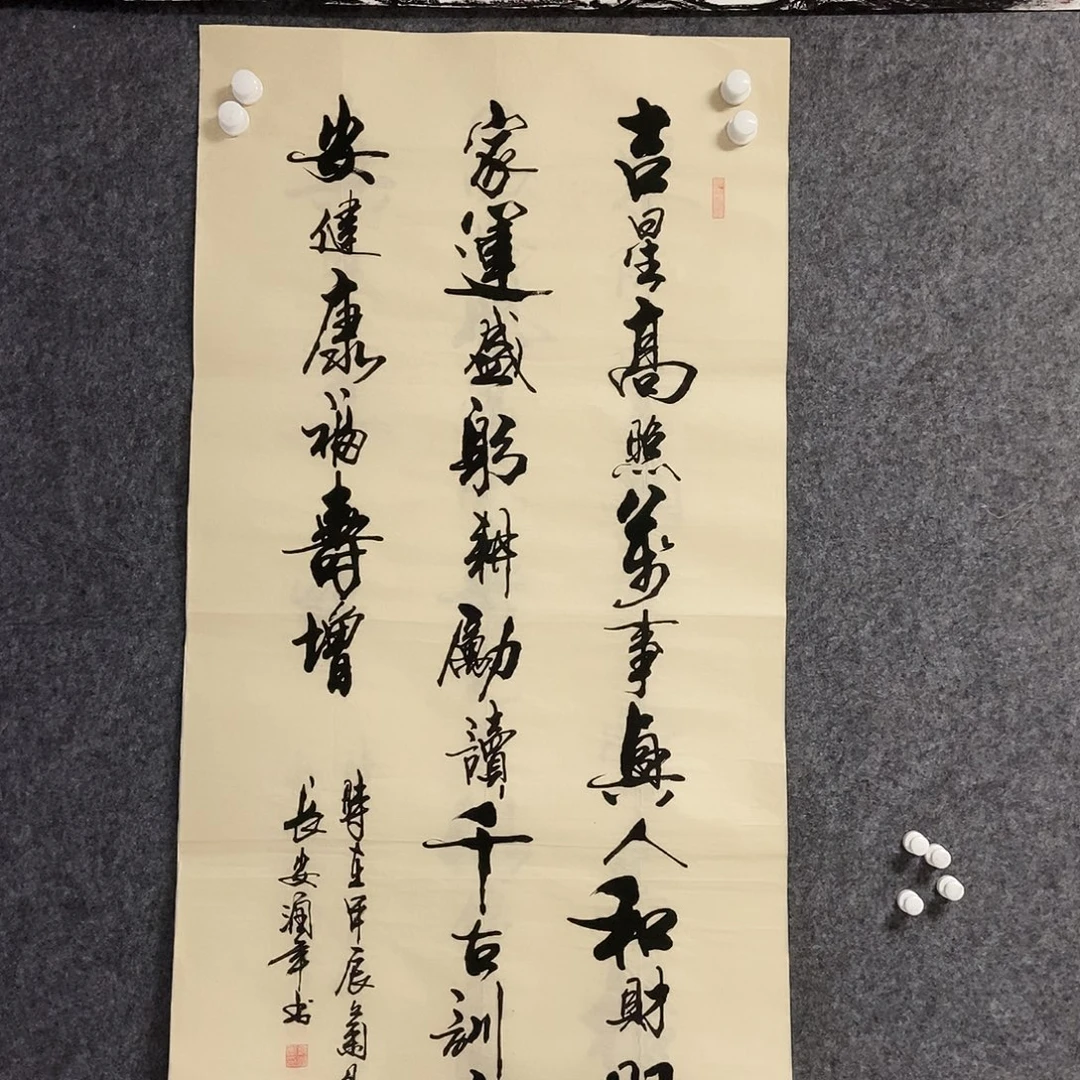 吉星高照萬事興人和財
家運盛躬耕勵讀千古訓
安健康福壽增
時在甲辰蘭月
長安潤年书